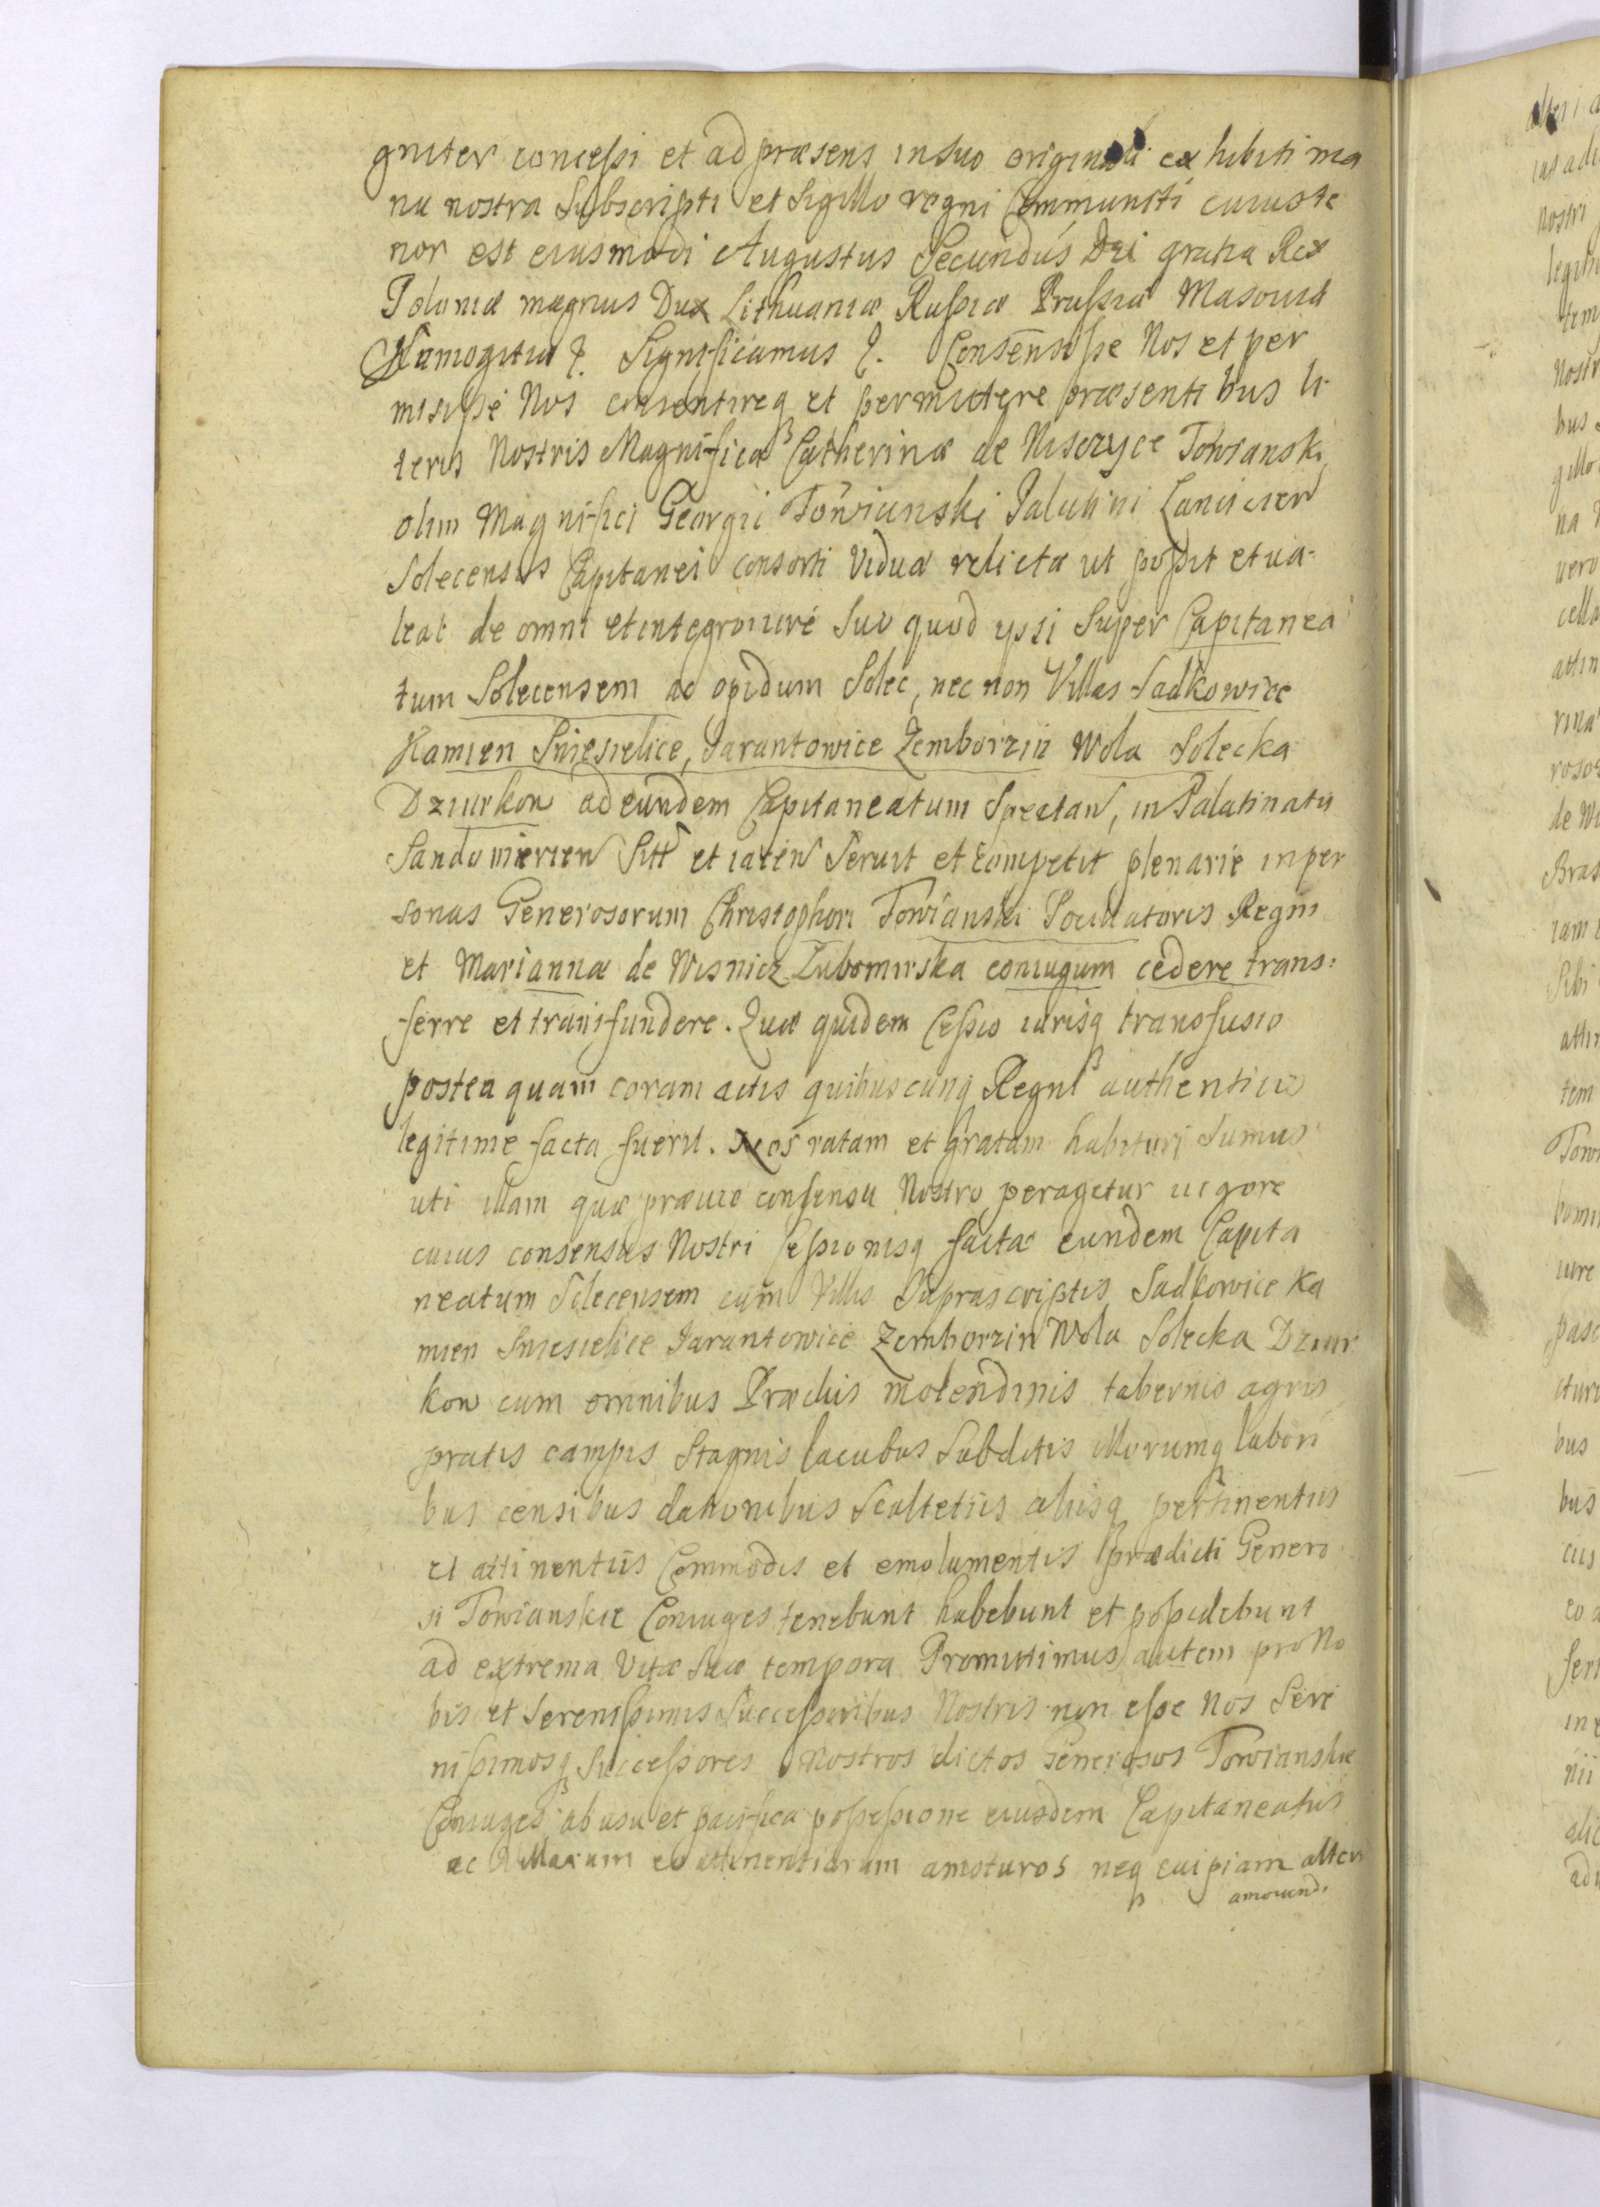 gniter concessi et ad præsens in suo originali exhibiti ma
nu nostra Subscripti et Sigillo regni Communiti cuius te
nor est eiusmodi Augustus Secundus Dei gratia Rex
Poloniæ magnus Dux Lithuaniæ Russiæ Prussiæ Masoviæ
Samogitiæ &. Significamus &. Consensisse Nos et per
misisse Nos consentireq et permittere præsentibus li-
teris Nostris Magnificæ Catherinæ de Niszczyce Towianski
olim Magnifici Georgii Towianski Palatini Lancicien
Solecensis Capitanei consorti Viduæ relictæ ut possit et va-
leat de omni et integro iure suo quod ypsi Super Capitanea
tum Solecensem ac opidum Solec, nec non Villas Sadkowice
Kamien Sniesielice, Jarantowice Zemborzin Wola Solecka
Dziurkon ad eundem Capitaneatum Spectan, in Palatinatu
Sandomierien Sitt et iacen Seruit et competit plenarie in per
sonas Generosorum Christophori Towianski Pocillatoris Regni
et Mariannæ de Wisnicz Lubomirska coniugum cedere trans:
ferre et transfundere. Quæ quidem Cessio iurisq transfusio
postea quam coram actis quibuscunq Regni authenticis
legitime facta fuerit. Nos ratam et gratam habituri Sumus
uti illam quæ prævio consensu Nostro peragetur vigore
cuius consensus Nostri Cessionisq factæ eundem Capita
neatum Solecensem cum Villis Suprascriptis Sadkowice Ka
mien Sniesielice Jarantowice Zemborzin Wola Solecka Dziur
kon cum omnibus Prædiis molendinis tabernis agris
pratis campis Stagnis lacubus Subditis illorumq labori
bus censibus dationibus Scultetiis aliisq pertinentiis
et attinentiis Commodis et emolumentis prædicti Genero
si Towianskie Coniuges tenebunt habebunt et possidebunt
ad extrema Vitæ Suæ tempora Promittimus autem pro No
bis et Serenissimis Successoribus Nostris non esse Nos Sere
nissimosq Successores Nostros dictos Generosos Towianskie
Coniuges, ab usu et pacifica possessione eiusdem Capitaneatus
ac Villarum eo attinentiarum amoturos neq cuipiam alteri
amovend.